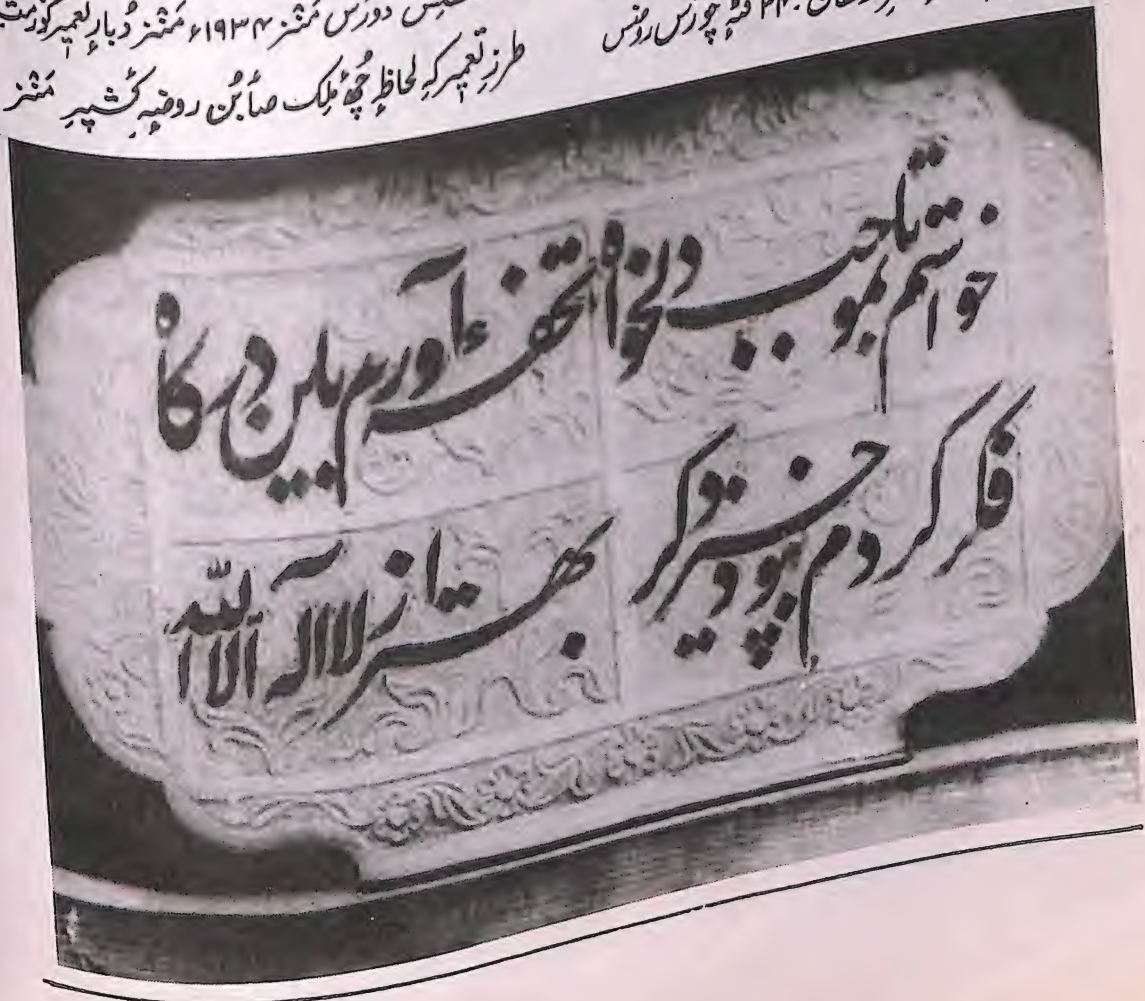 ۲۴ فٹہٕ چورس روضس
دورس منٛز ۱۹۳۴ء منٛز دُبارٕ تعمیر کورمت
طرزِ تعمیرکہِ لحاظہٕ چُھ مٔلِک صٲبُن روضہٕ کٔشیٖرِ منٛز
خواستم تا بموجب دلخواه تحفهٔ آورم باین درگاه
فکر کردم نبود چیز دگر بهتر از لا اله الا الله